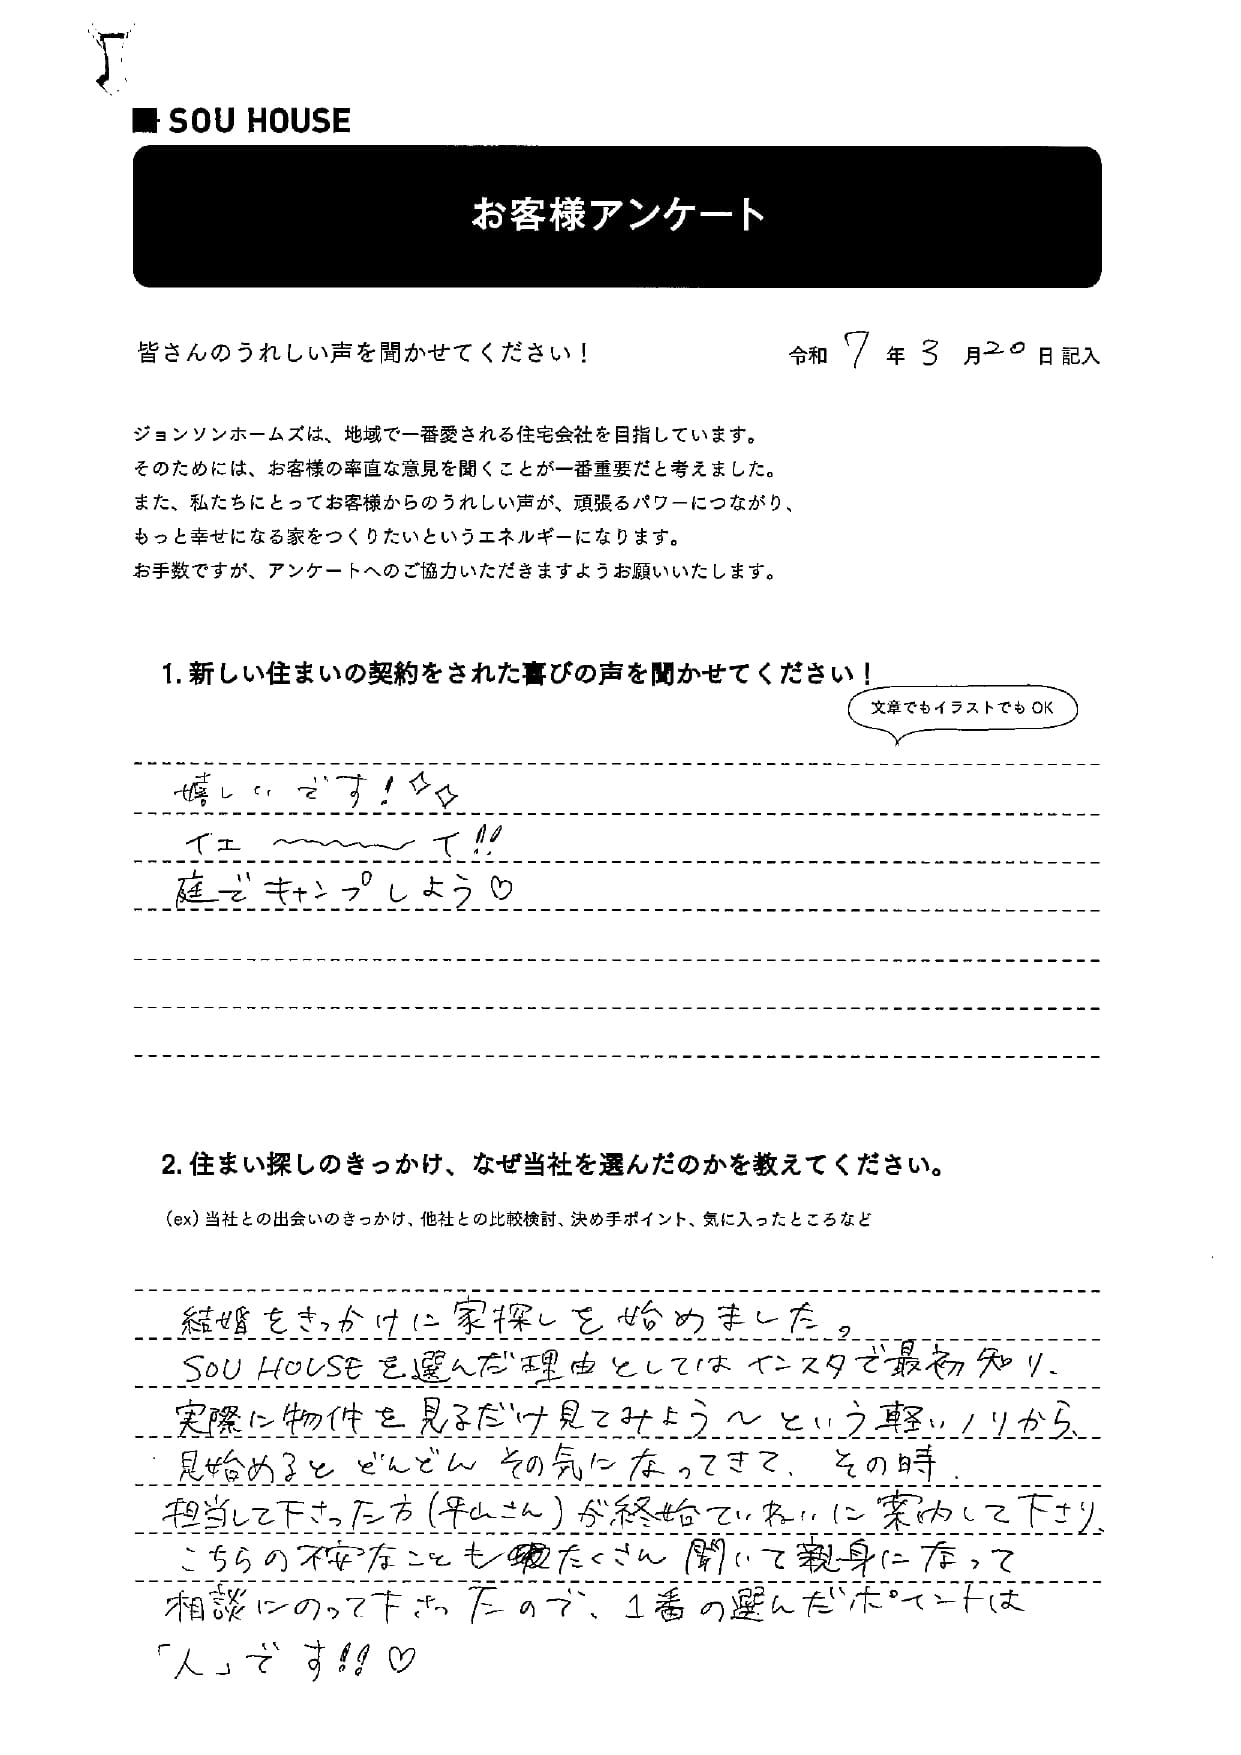 SOU HOUSE
お客様アンケート
皆さんのうれしい声を聞かせてください！
令和 7 年 3 月 20 日 記入
ジョンソンホームズは、地域で一番愛される住宅会社を目指しています。
そのためには、お客様の率直な意見を聞くことが一番重要だと考えました。
また、私たちにとってお客様からのうれしい声が、頑張るパワーにつながり、
もっと幸せになる家をつくりたいというエネルギーになります。
お手数ですが、アンケートへのご協力いただきますようお願いいたします。
1. 新しい住まいの契約をされた喜びの声を聞かせてください！
文章でもイラストでも OK
嬉しいです！✧✧
イェ〜〜〜イ!!
庭でキャンプしよう♡
2. 住まい探しのきっかけ、なぜ当社を選んだのかを教えてください。
（ex）当社との出会いのきっかけ、他社との比較検討、決め手ポイント、気に入ったところなど
結婚をきっかけに家探しを始めました。
SOU HOUSEを選んだ理由としてはインスタで最初知り、
実際に物件を見るだけ見てみよう〜という軽いノリから、
見始めるとどんどんその気になってきて、その時、
担当して下さった方(平山さん)が終始ていねいに案内して下さり、
こちらの不安なこともたくさん聞いて親身になって
相談にのって下さったので、1番の選んだポイントは
「人」です!!♡